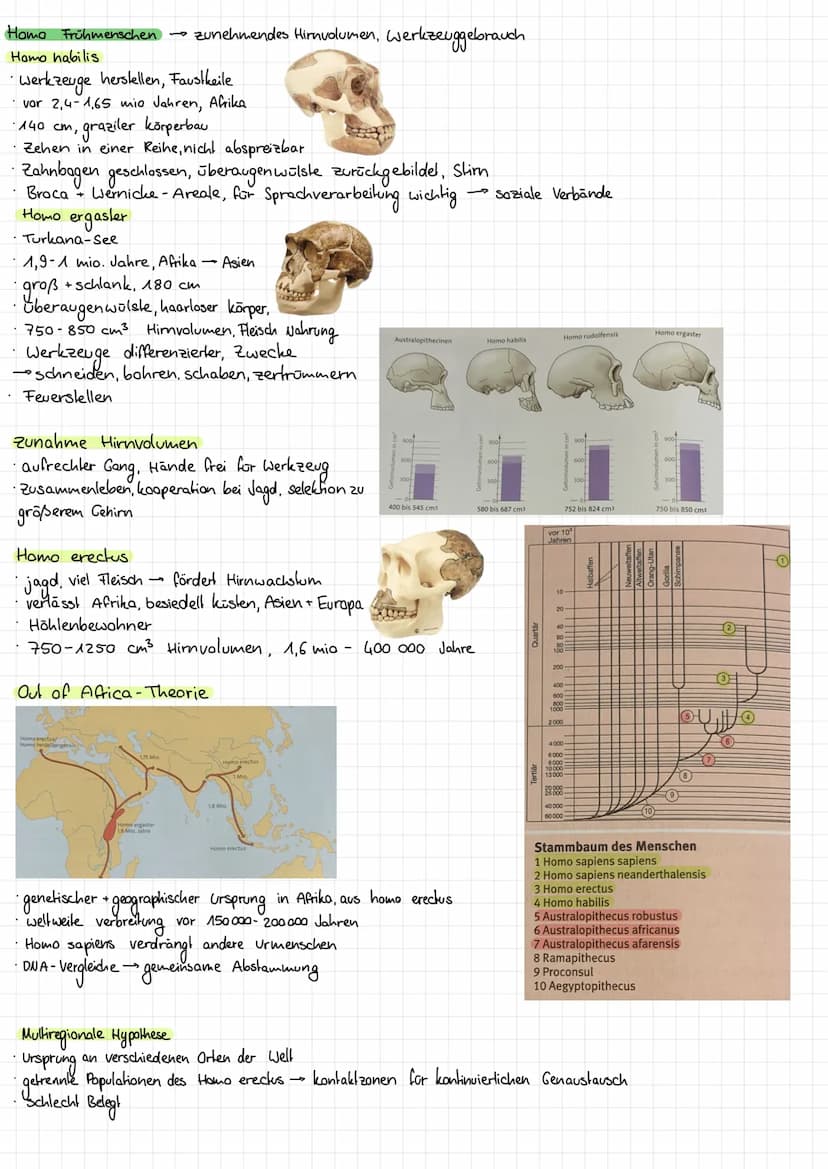 Homo Frühmenschen → zunehmendes Hirnvolumen, Werkzeuggebrauch
Homo habilis
· Werkzeuge herstellen, Faustkeile
· vor 2,4-1,65 mio Jahren, Afrika
· 140 cm, graziler Körperbau
· Zehen in einer Reihe, nicht abspreizbar
· Zahnbogen geschlossen, überaugenwülste zurückgebildet, Stirn
· Broca + Wernicke-Areale, für Sprachverarbeitung wichtig → soziale Verbände
Homo ergaster
· Turkana-See
· 1,9-1 mio. Jahre, Afrika → Asien
· groß + schlank, 180 cm
· Überaugenwülste, haarloser Körper,
· 750-850 cm³ Hirnvolumen, Fleisch Nahrung
· Werkzeuge differenzierter, Zwecke
→ schneiden, bohren, schaben, zertrümmern
· Feuerstellen
Australopithecinen
Homo habilis
Homo rudolfensis
Homo ergaster
Gehirnvolumen in cm³
900
600
300
0
Gehirnvolumen in cm³
900
600
300
0
Gehirnvolumen in cm³
900
600
300
0
Gehirnvolumen in cm³
900
600
300
0
400 bis 545 cm³
580 bis 687 cm³
752 bis 824 cm³
750 bis 850 cm³
Zunahme Hirnvolumen
· aufrechter Gang, Hände frei für Werkzeug
· Zusammenleben, Kooperation bei Jagd, Selektion zu
größerem Gehirn
Homo erectus
· Jagd, viel Fleisch → fördert Hirnwachstum
· verlässt Afrika, besiedelt Küsten, Asien + Europa
· Höhlenbewohner
· 750-1250 cm³ Hirnvolumen, 1,6 mio - 400 000 Jahre
Out of Africa-Theorie
Homo erectus/
Homo heidelbergensis
1,75 Mio.
Homo erectus
1 Mio.
1,8 Mio.
Homo ergaster
1,8 Mio. Jahre
Homo erectus
· genetischer + geographischer Ursprung in Afrika, aus homo erectus
· weltweite verbreitung vor 150 000-200 000 Jahren
· Homo sapiens verdrängt andere Urmenschen
· DNA-Vergleiche → gemeinsame Abstammung
vor 10³
Jahren
Halbaffen
Neuweltaffen
Altweltaffen
Orang-Utan
Gorilla
Schimpanse
Quartär
Tertiär
10
20
40
60
80
100
200
400
600
800
1000
2 000
4 000
6 000
8 000
10 000
13 000
20 000
25 000
40 000
60 000
1
2
3
4
5
6
7
8
9
10
Stammbaum des Menschen
1 Homo sapiens sapiens
2 Homo sapiens neanderthalensis
3 Homo erectus
4 Homo habilis
5 Australopithecus robustus
6 Australopithecus africanus
7 Australopithecus afarensis
8 Ramapithecus
9 Proconsul
10 Aegyptopithecus
Multiregionale Hypothese
· Ursprung an verschiedenen Orten der Welt
· getrennte Populationen des Homo erectus → Kontaktzonen für kontinuierlichen Genaustausch
· Schlecht Belegt